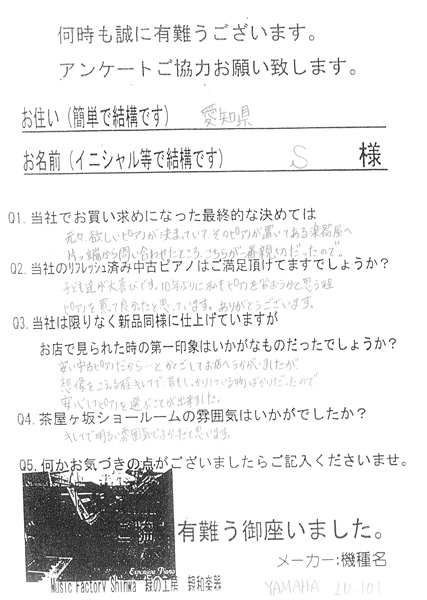 何時も誠に有難うございます。
アンケートご協力お願い致します。
お住い（簡単で結構です） 愛知県
お名前（イニシャル等で結構です） S 様
Q1. 当社でお買い求めになった最終的な決めては
元々、欲しいピアノが決まっていて、そのピアノが置いてある楽器屋へ
片っ端から問い合わせたところ、こちらが一番親切だったので。
Q2. 当社のﾘﾌﾚｯｼｭ済み中古ピアノはご満足頂けてますでしょうか？
子ども達が大喜びです。10年ぶりに私もピアノをなおうかと思う程
ピアノを買って良かったと思っています。ありがとうございます。
Q3. 当社は限りなく新品同様に仕上げていますが
お店で見られた時の第一印象はいかがなものだったでしょうか？
安い中古ピアノだから…とかくごしてお店へうかがいましたが
想像をこえる程キレイで、音もしっかりしている物ばかりだったので
安心してピアノを選ぶことが出来ました。
Q4. 茶屋ヶ坂ショールームの雰囲気はいかがでしたか？
キレイで明るい雰囲気でよかったと思います。
Q5. 何かお気づきの点がございましたらご記入くださいませ。
Expensive Piano
有難う御座いました。
メーカー：機種名
Music Factory Shinwa 親和楽器
YAMAHA LU-101